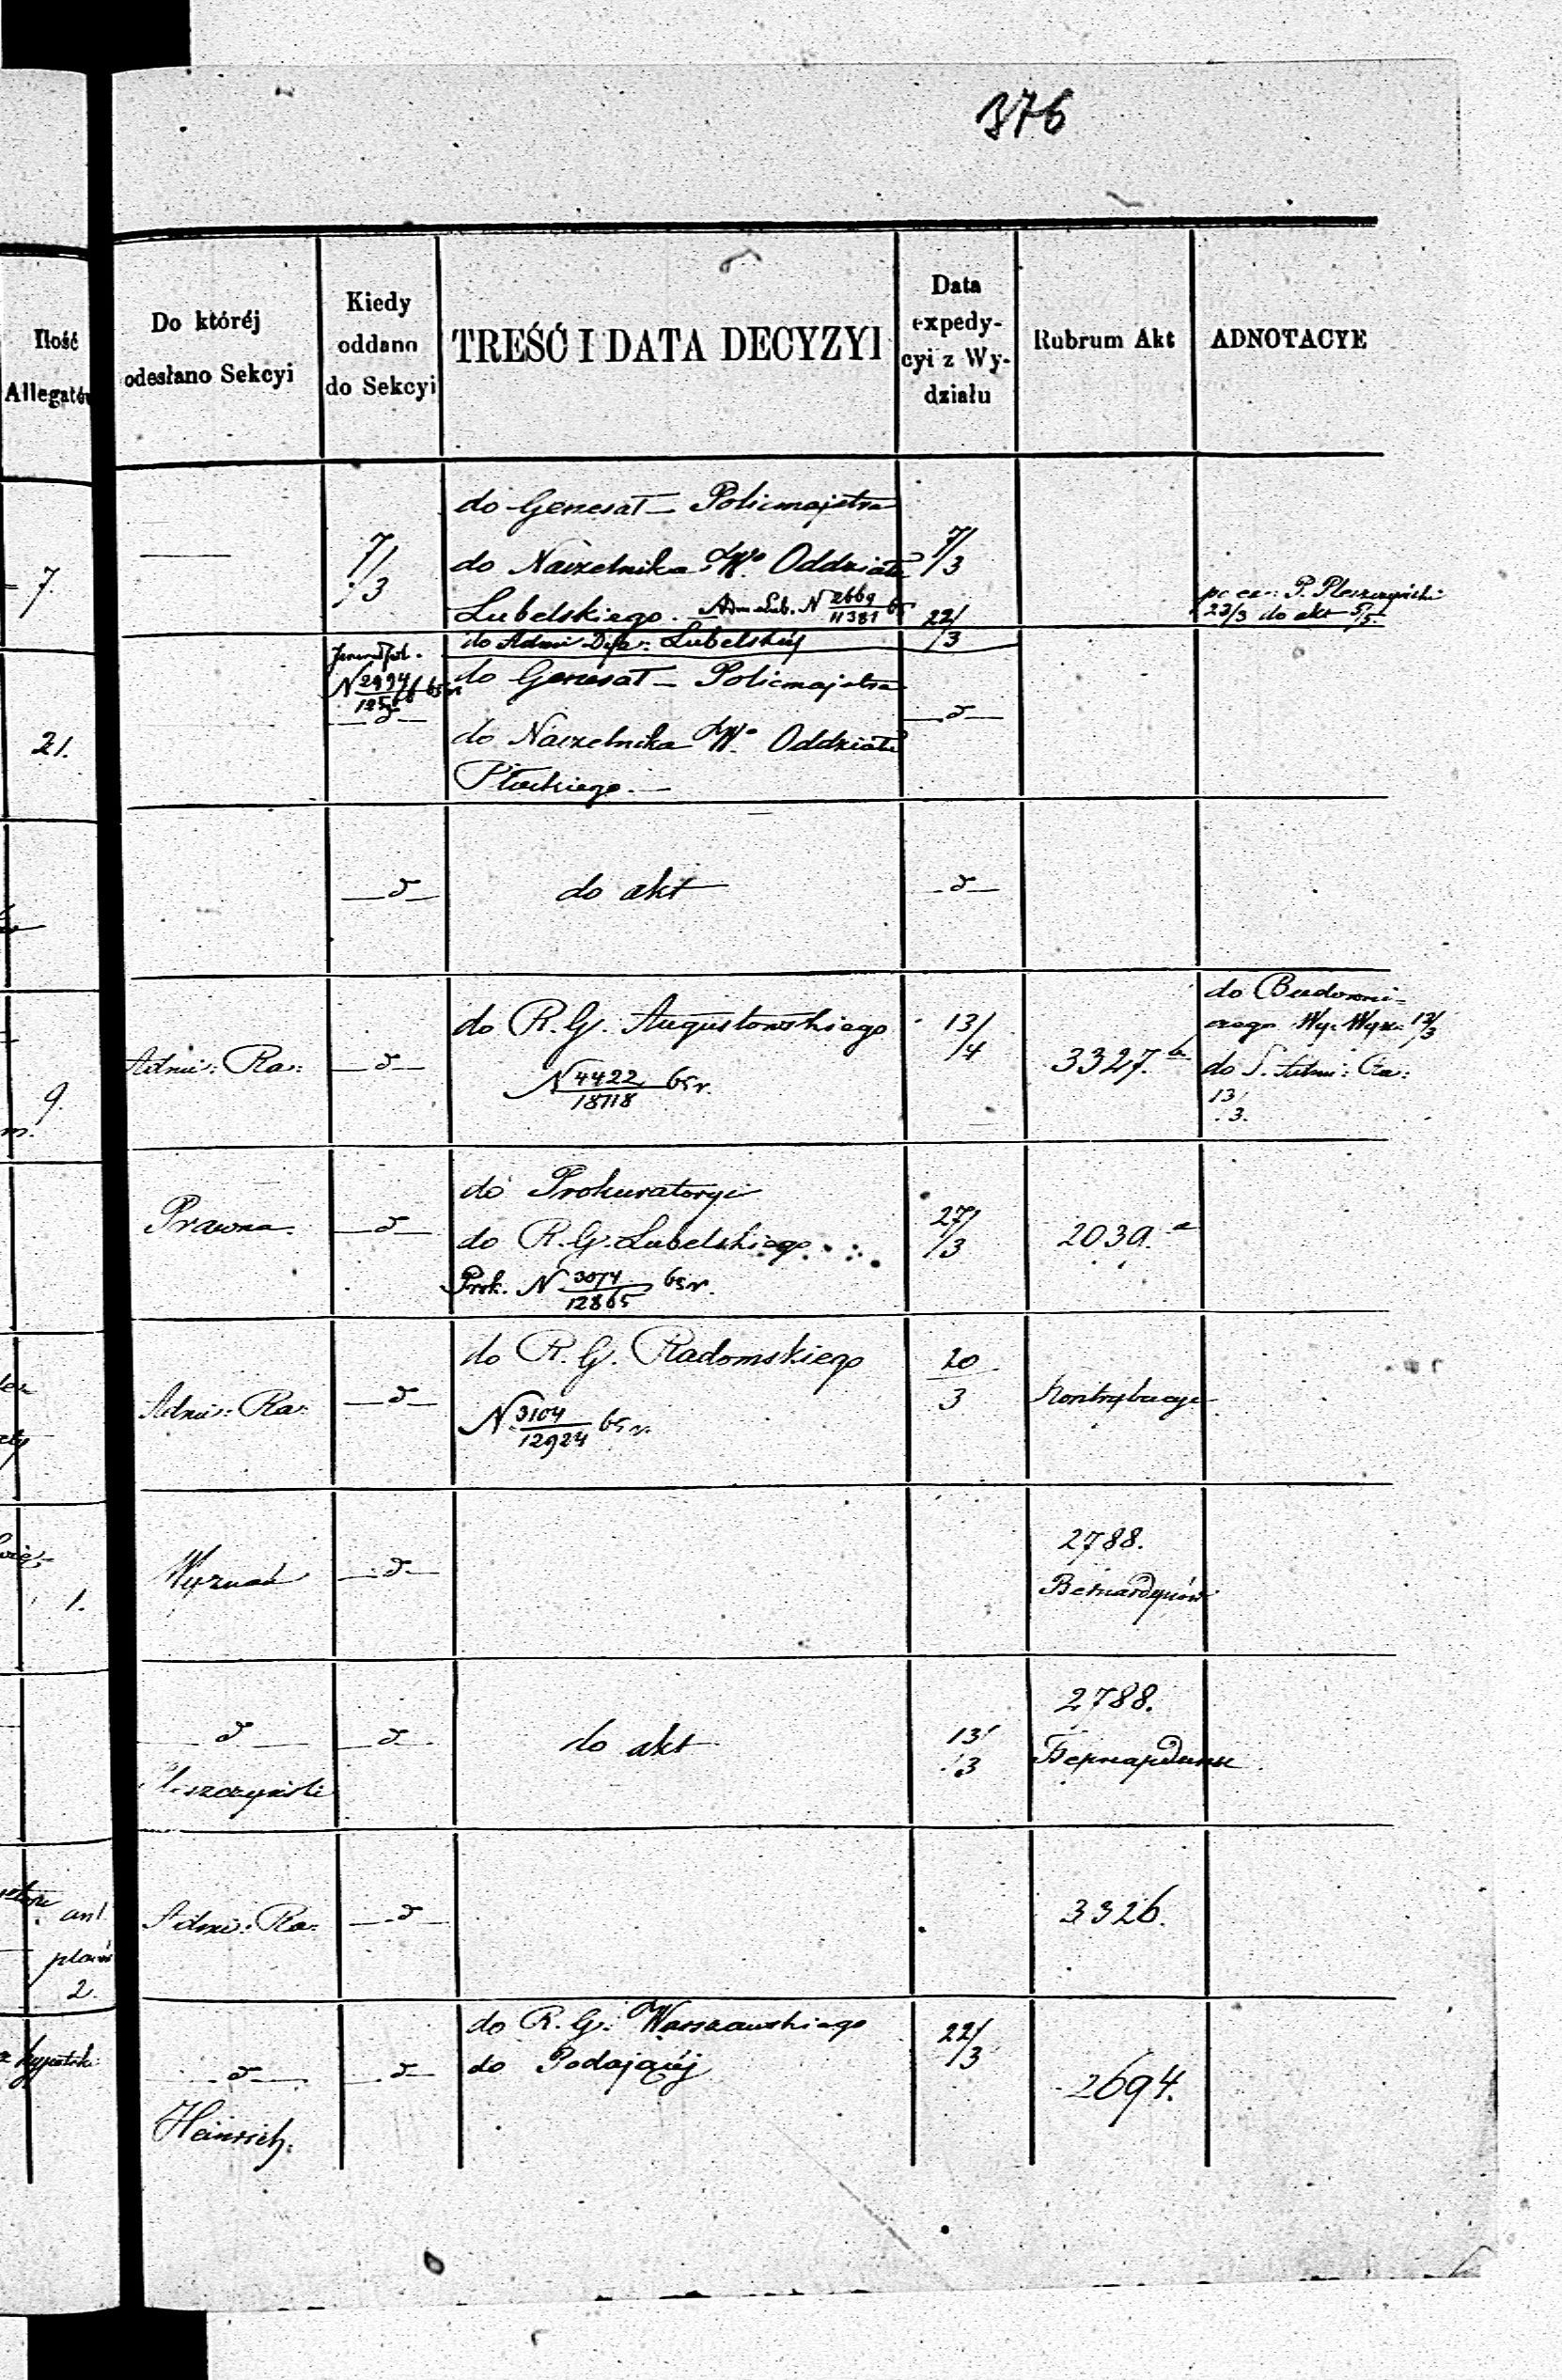 376
Ilość
Allegatów
Do któréj
odesłano Sekcyi
Kiedy
oddano
do Sekcyi
TREŚĆ I DATA DECYZYI
Data
expedy-
cyi z Wy-
działu
Rubrum Akt
ADNOTACYE
7.
7/3
do Generał – Policmajstra
do Naczelnika Wo Oddziału
Lubelskiego. – Adm. Lub. N 2669/11381 65
do Admi: Dye: Lubelskiéj
7/3
22/3
P. Pleszczyński
23/3 do akt 5/5.
21.
N 2994/12566 65 r.
– d –
do Generał – Policmajstra
do Naczelnika Wo Oddziału
Płockiego. –
– d –
– d –
do akt
– d –
9.
Admi: Ra:
– d –
do R. G. Augustowskiego
N 4422/18718 65 r.
13/4
3327. b
do Budowni-
czego Wy: Wyzn: 13/3
do S. Admi: Ra:
13/3.
Prawna.
– d –
do Prokuratoryi
do R. G. Lubelskiego
Prok. N 3074/12865 65 r.
27/3
2039. a
Admi: Ra:
– d –
do R. G. Radomskiego
N 3104/12924 65 r.
20/3
Kontrybucye
1.
Wyznań
– d –
2788.
Bernardynów
– d –
Pleszczyński
– d –
do akt
13/3
2788.
Бернардини
ant
planów
2.
Admi: Ra:
– d –
3326.
– d –
Heinrich.
– d –
do R. G. Warszawskiego
do Podającéj
22/3
2694.